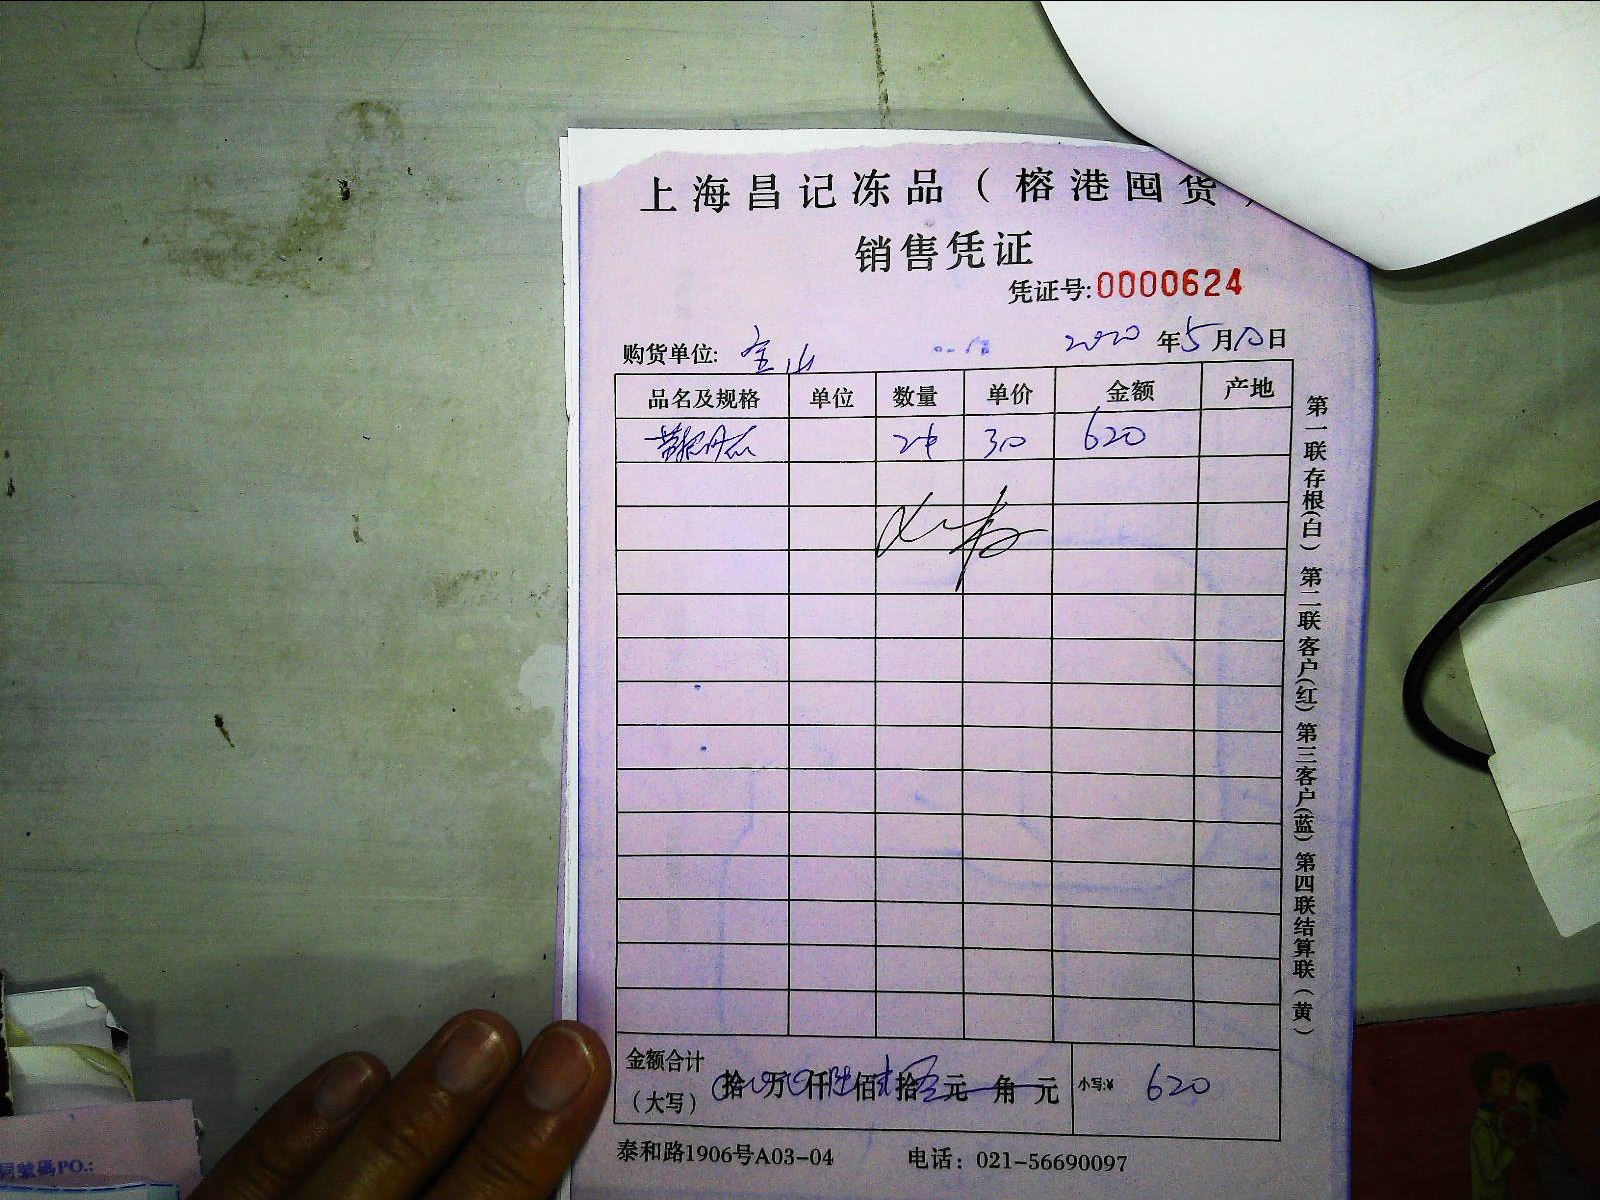 上海昌记冻品（榕港囤货）
销售凭证
凭证号:0000624
购货单位: 宝山 2020年5月10日
品名及规格 单位 数量 单价 金额 产地
2件 310 620
金额合计（大写） 拾 万 仟陆佰贰拾 元 角 元 小写:¥ 620
泰和路1906号A03-04 电话：021-56690097
第一联存根(白) 第二联客户(红) 第三客户(蓝) 第四联结算联(黄)
同業碼PO.: